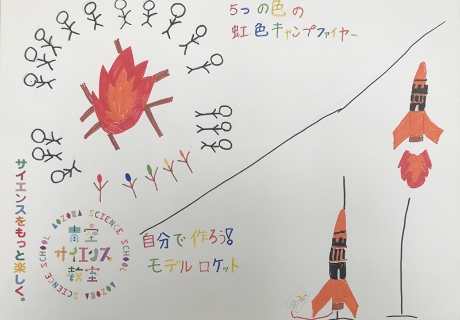 5つの色の
虹色キャンプファイヤー
サイエンスをもっと楽しく。
AOZORA SCIENCE SCHOOL
AOZORA SCIENCE SCHOOL
青空
サイエンス
教室
自分で作ろう!
モデルロケット